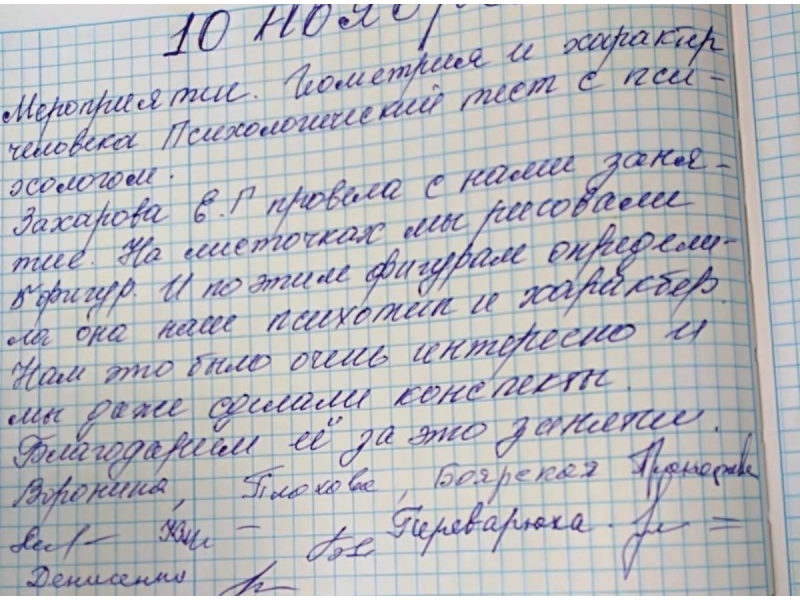 10 Ноября
Мероприятии. Геометрия и характер
человека Психологический тест с пси-
хологом.
Захарова Е.Г провела с нами заня-
тие. На листочках мы рисовали
5 фигур. И по этим фигурам определи-
ла она наш психотип и характер.
Нам это было очень интересно и
мы даже сделали конспекты.
Благодарим её за это занятии.
Воронина, Плохова, Боярская
Переварюха.
Денисенко